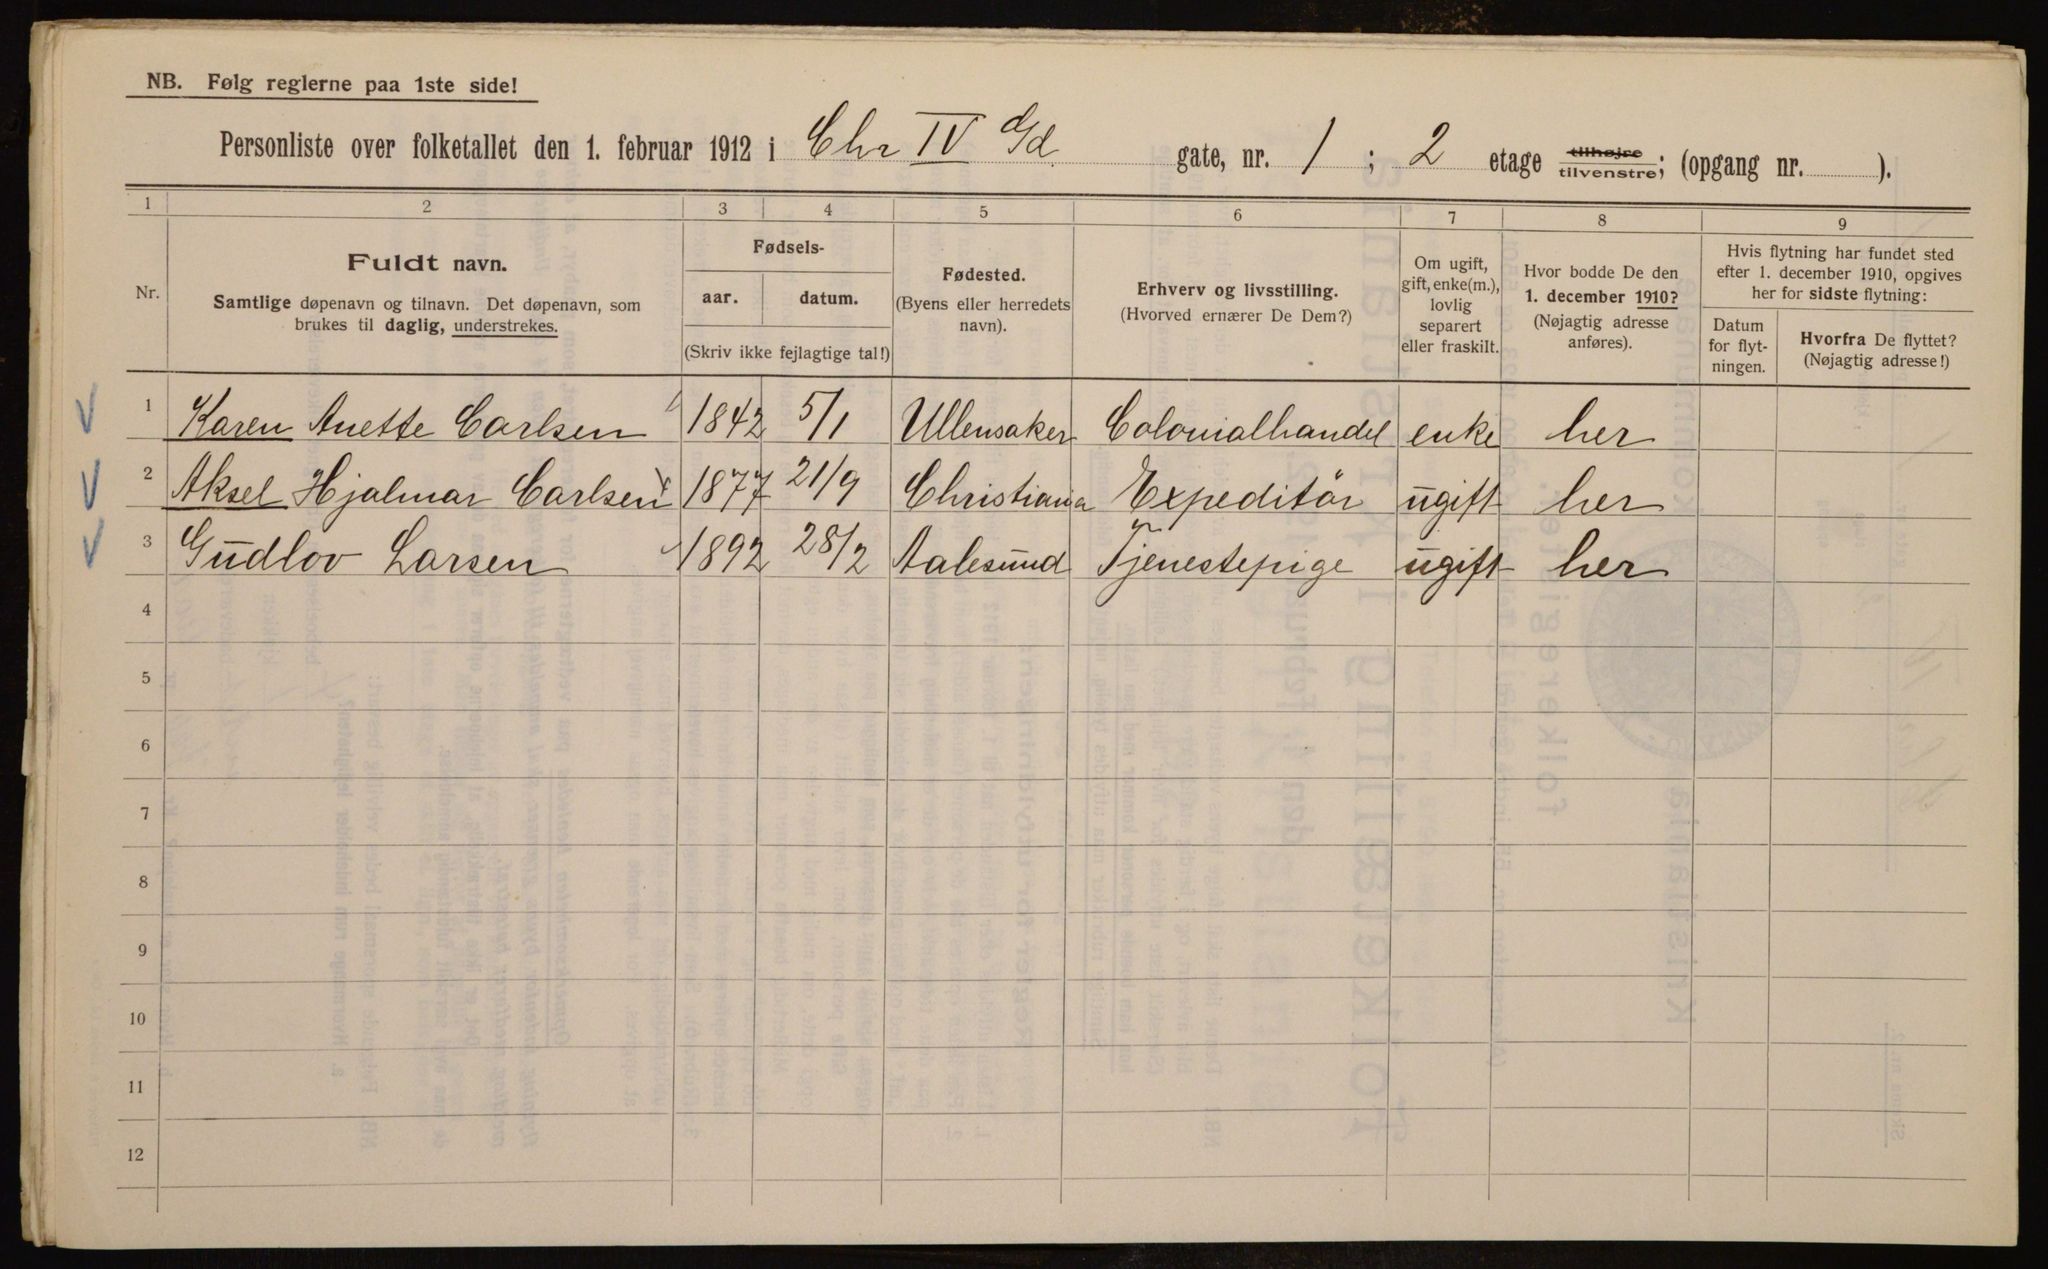 NB. Følg reglerne paa 1ste side!
Personliste over folketallet den 1. februar 1912 i Chr IV Gd gate, nr. 1 ; 2 etage tilhøjre tilvenstre; (opgang nr. ).
1 2 3 4 5 6 7 8 9
Nr.
Fuldt navn.
Samtlige døpenavn og tilnavn. Det døpenavn, som
brukes til daglig, understrekes.
Fødsels-
aar. datum.
(Skriv ikke fejlagtige tal!)
Fødested.
(Byens eller herredets
navn).
Erhverv og livsstilling.
(Hvorved ernærer De Dem?)
Om ugift,
gift, enke(m.),
lovlig
separert
eller fraskilt.
Hvor bodde De den
1. december 1910?
(Nøjagtig adresse
anføres).
Hvis flytning har fundet sted
efter 1. december 1910, opgives
her for sidste flytning:
Datum
for flyt-
ningen.
Hvorfra De flyttet?
(Nøjagtig adresse!)
1 Karen Anette Carlsen 1842 5/1 Ullensaker Colonialhandel enke her
2 Aksel Hjalmar Carlsen 1877 21/9 Christiania Expeditör ugift her
3 Gudlov Larsen 1892 28/2 Aalesund Tjenestepige ugift her
4
5
6
7
8
9
10
11
12